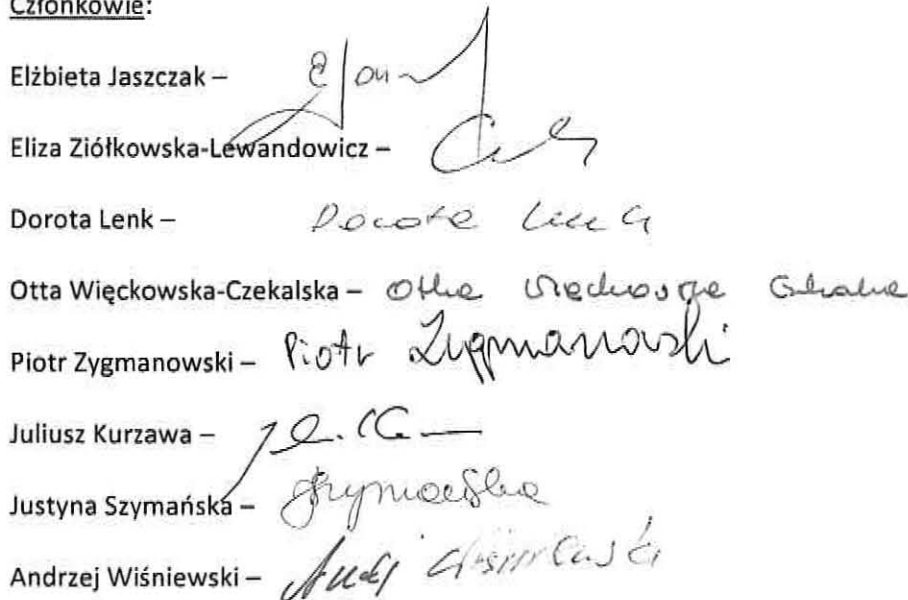 Członkowie:
Elżbieta Jaszczak –
Eliza Ziółkowska-Lewandowicz –
Dorota Lenk – Dorota Lenk
Otta Więckowska-Czekalska – Otta
Piotr Zygmanowski – Piotr Zygmanowski
Juliusz Kurzawa –
Justyna Szymańska – Szymańska
Andrzej Wiśniewski –